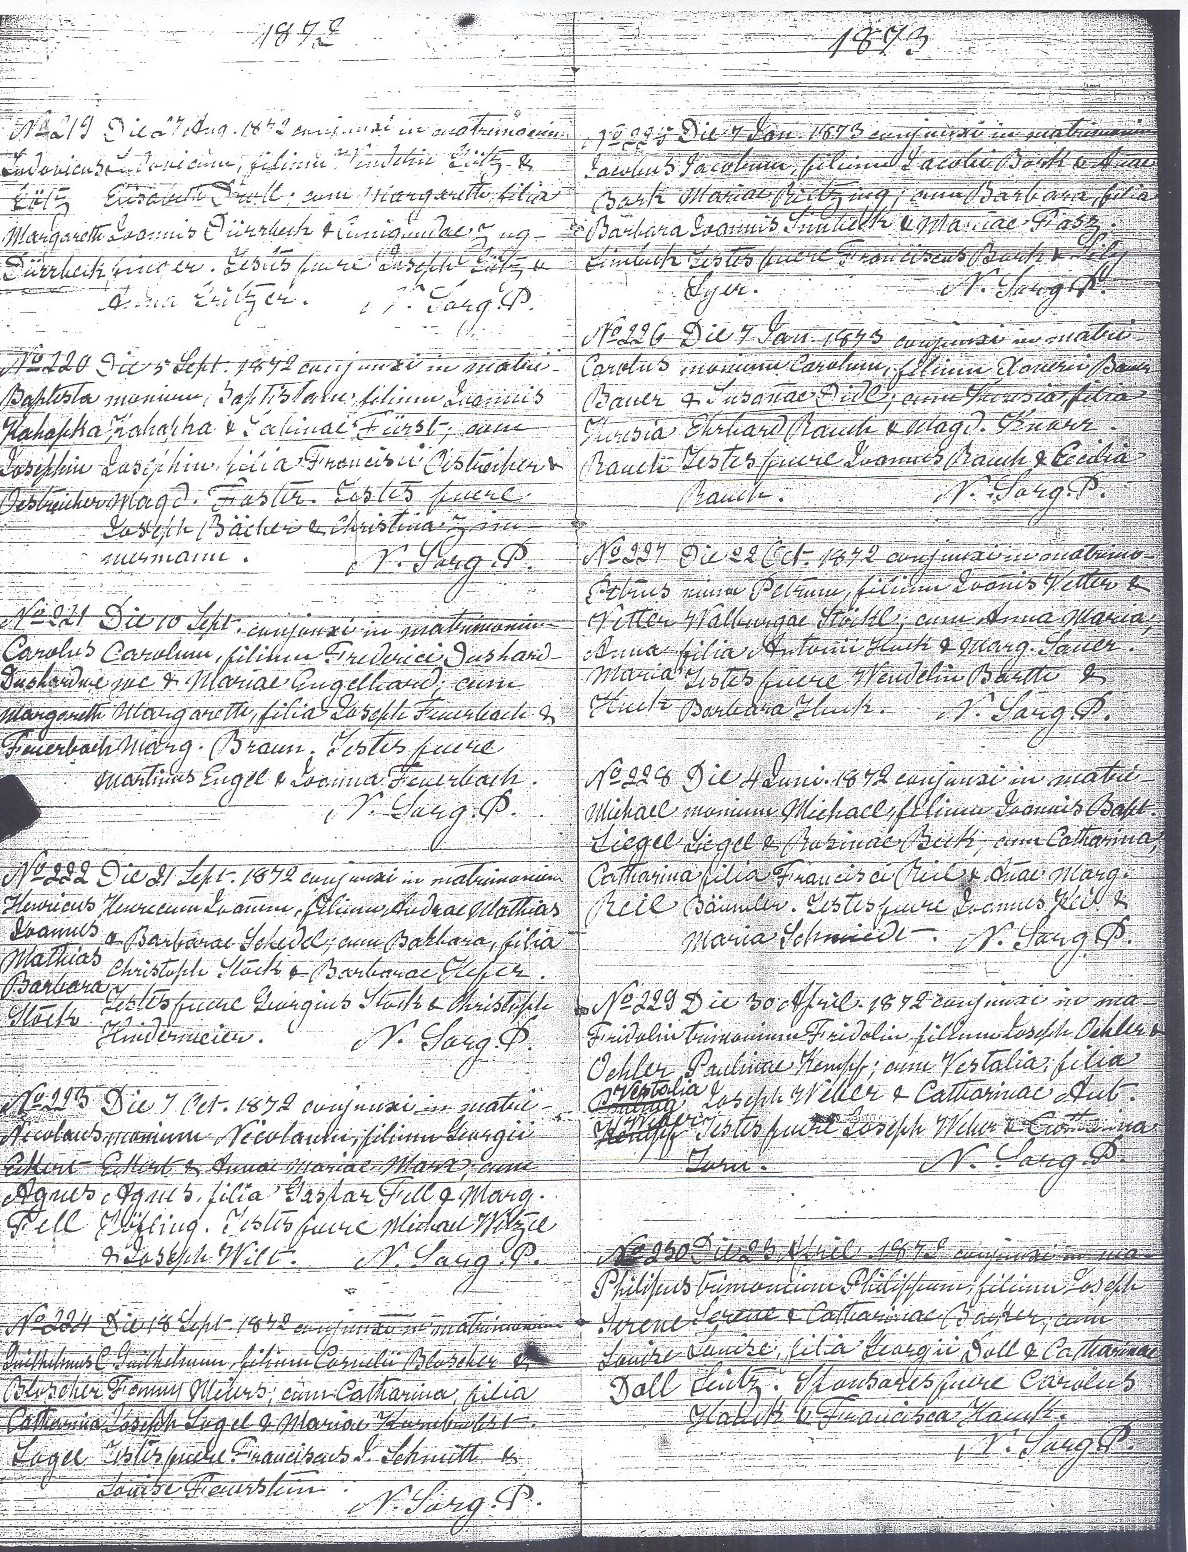 1872
No 219 Die 27 Aug. 1872 conjunxi in matrimonium
Ludovicus Ludovicum, filium Lütz &
Lütz Elisabeth Droll, cum Margareth filia
Margareth Joannis Dürrbeck & Cunigundae Zug-
Dürrbeck finger. Testes fuere Joseph Lütz &
Anna Critzer. N. Sorg. P.
No 220 Die 5 Sept. 1872 conjunxi in matri-
Baptista monium, Baptistam, filium Joannis
Kahapka Kahapka & Sabinae Fürst, cum
Josephin Josephin, filia Francisci Oestreicher &
Oestreicher Magd. Faster. Testes fuere
Joseph Bächer & Christina Zim-
mermann. N. Sorg. P.
No 221 Die 10 Sept. conjunxi in matrimonium
Carolus Carolum, filium Frederici Dushard-
Dushardwe we & Mariae Engelhard, cum
Margareth Margareth, filia Joseph Feuerbach &
Feuerbach Marg. Braun. Testes fuere
Martinus Engel & Joanna Feuerbach.
N. Sorg. P.
No 222 Die 21 Sept. 1872 conjunxi in matrimonium
Henricus Henricum Joannem, filium Andrae Mathias
Joannes & Barbarae Schedel; cum Barbara, filia
Mathias Christoph Stöck & Barbarae Hefer.
Barbara Testes fuere Georgius Stöck & Christoph
Stöck Hindermeier. N. Sorg. P.
No 223 Die 7 Oct. 1872 conjunxi in matri-
Nicolaus monium Nicolaum, filium Georgii
Eckert Eckert & Annae Mariae Marx, cum
Agnes Agnes, filia Gaspar Fell & Marg.
Fell Testes fuere Michael Witzel
& Joseph Wilt. N. Sorg. P.
No 224 Die 18 Sept. 1872 conjunxi in matrimonium
Guilhelmus Guilhelmum, filium Cornelii Bloscher &
Bloscher Fanny Meiers; cum Catharina, filia
Catharina Joseph Sogel & Mariae
Sogel Testes fuere Franciscus J. Schmitt &
Louise Feuerstein.
N. Sorg. P.
1873
No 225 Die 7 Jan. 1873 conjunxi in matrimonium
Jacobus Jacobum, filium Jacobi Bork & Annae
Bork Mariae cum Barbara, filia
Barbara Joannis Limbeck & Mariae Fasz.
Limbach Testes fuere Franciscus Bork &
N. Sorg. P.
No 226 Die 7 Jan. 1873 conjunxi in matri-
Carolus monium Carolum, filium Xaverii Bauer
Bauer & Susanae Didl; cum Theresia, filia
Theresia Ehrhard Rauch & Magd. Knorr.
Rauch Testes fuere Joannes Rauch & Cecilia
Rauch. N. Sorg. P.
No 227 Die 22 Oct. 1872 conjunxi in matrimo-
Petrus nium Petrum, filium Joanis Vetter &
Vetter Walburgae Stöckl; cum Anna Maria,
Anna filia Antonii Huck & Marg. Sauer.
Maria Testes fuere Wendelin Barth &
Huck Barbara Huck. N. Sorg. P.
No 228 Die 4 Juni 1872 conjunxi in matri-
Michael monium Michael, filium Joannis Bapt.
Siegel Siegel & Rosinae Beck, cum Catharina,
Catharina filia Francisci Reil & Anae Marg.
Reil Bäumler. Testes fuere Joannes Reil &
Maria Schmiedt. N. Sorg. P.
No 229 Die 30 April. 1872 conjunxi in ma-
Fridolin trimonium Fridolin, filium Joseph Oehler &
Oehler Paulinae Kempf; cum Vestalia, filia
Vestalia Joseph Weber & Catharinae Aut.
Weber Testes fuere Joseph Weber &
Zorn. N. Sorg. P.
No 230 Die 23 April. 1872 conjunxi in ma-
Philipus trimonium Philippum, filium Joseph
Serene Serene & Catharinae Bayer, cum
Louise Louise, filia Georgii Doll & Catharinae
Doll Seitz. Sponsores fuere Carolus
Hauck & Francisca Hauck.
N. Sorg. P.